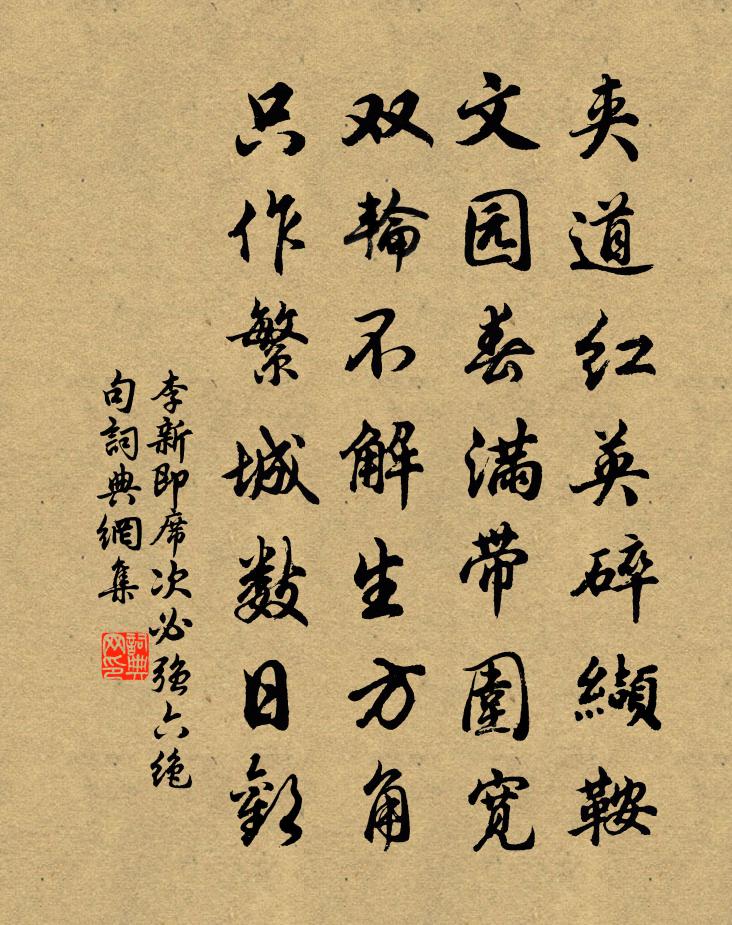 夹道红英碎缬鞍
文园春满带圍宽
双輪不解生方角
只作繁城数日歡
李新即席次必强六绝
句詞典網集
詞典网印